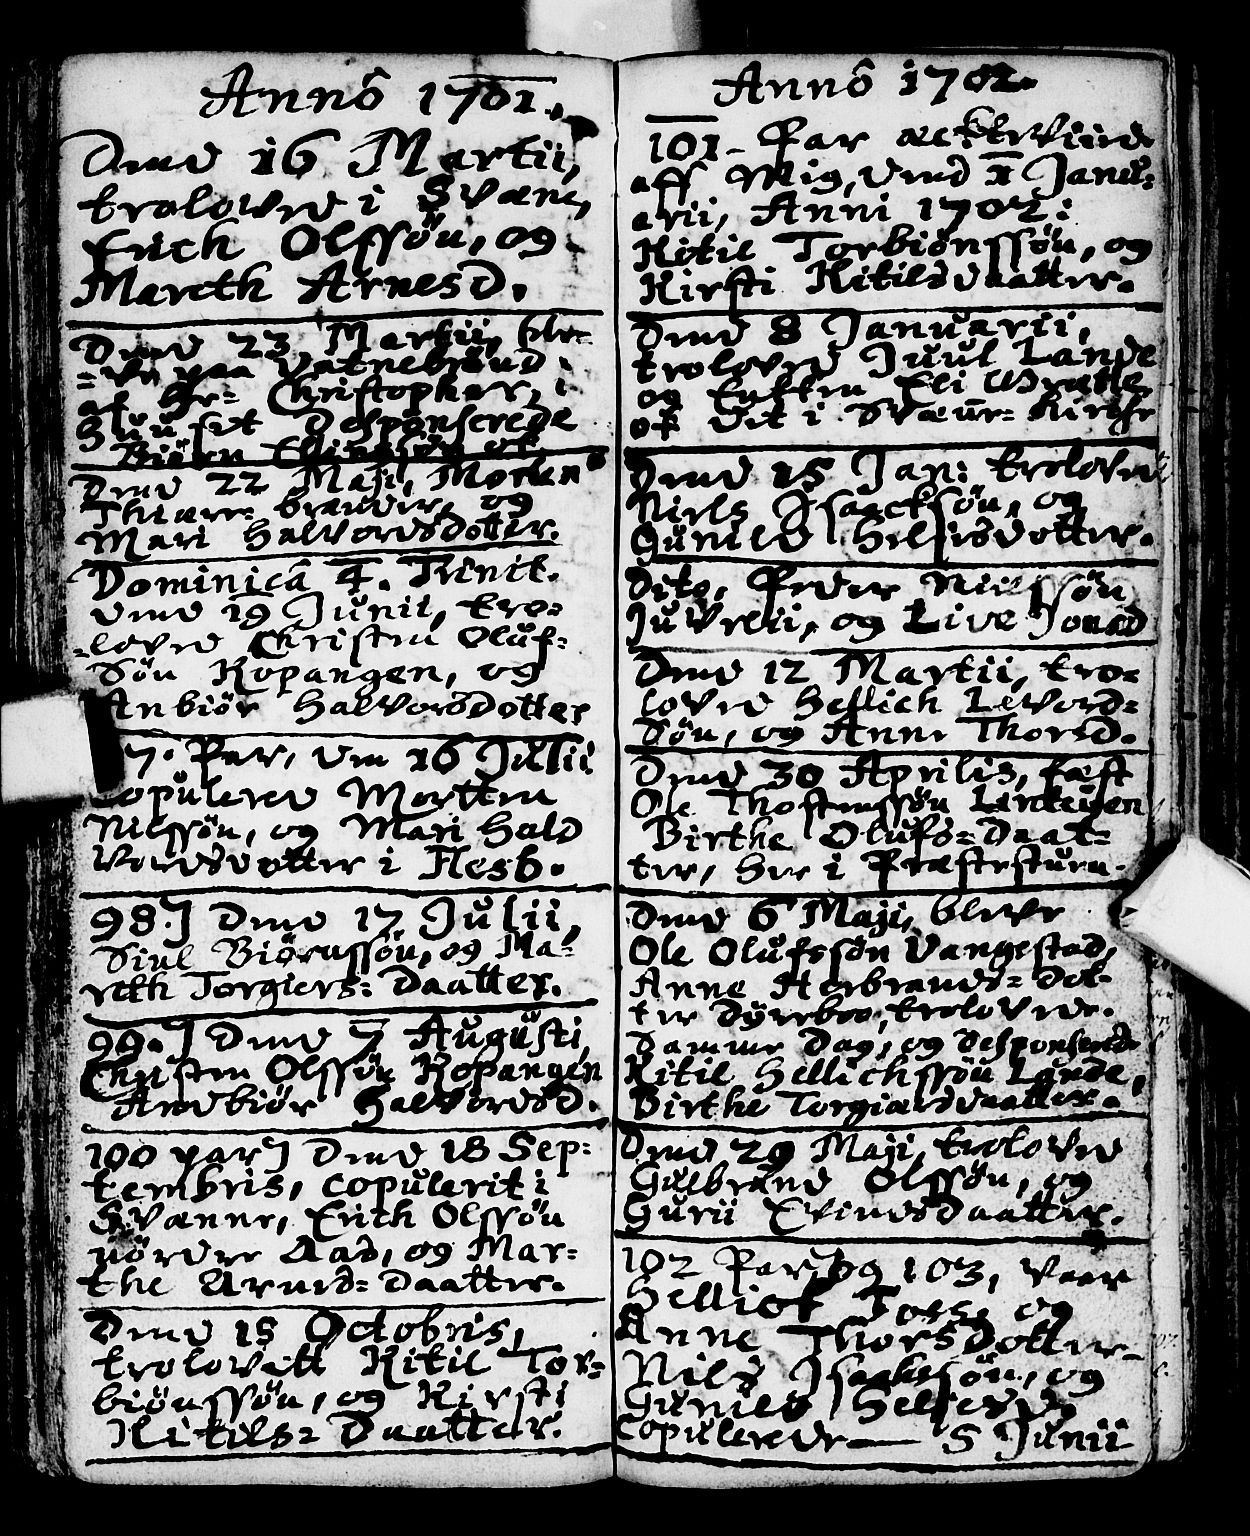 Annô 1701.,
Dend 16 Martii,
troloved i Svæne,
Erich Olssön, og
Mareth Arnesd.
Dend 23, Martii, ble-
-ve paa Vatnebrönd
af Hr: Christopher, i
desponserede
Biörn Ellingsön ok
Dend 22 Maji, Morten
brænder, og
Mari Halvordsdotter.
Dominicâ 4. Trinit.
dend 19 Junii, tro-
-loved Christen Oluf-
Sön Kopangen, og
Anbiör Halvorsdotter
7. Par, den 16 Julii
Copulered Morten
Nilssön, og Mari Hald
Vordsdotter i Flesb.
98.] Dend 17 Julii,
Siul Biörnssön, og Ma-
reth Torgiers= Daatter.
99.] Dend 7 Augusti,
Christen Olssön Kopangen
Andbiör Halvordsd.
100 par] Dend 18 Sep-
tembris, Copulerit i
Svænne, Erich Olssön
nördre Aas, og Mar-
the Arnes= Daatter.
Dend 15 Octobris,
trolovett Kitil Tor-
biönssön, og Kirsti
Kitils= Daatter.
Annô 1702.
101- Par ækteviede
aff Mig, dend 1 Janu-
arii, Anni 1702:
Kitil Torbiönssön, og
Kirsti Kitilsdaatter.
Dend 8 Januarii,
troloved Juul Lande
og Enken Eli Wrætte
ok det i Svæne= kirche
Dend 15 Jan: trolovet
Niels Isacksön, og
Gunild Helgesdotter.
Dito, Peder Nielssön
Juvelii, og Live Jonsd
Dend 12 Martii, tro-
loved Hellich Levord-
Sön, og Anne Thorsd.
Dend 30 Aprilis, fæst
Ole Thostenssön Linteigen
Birthe Olufs= Daat-
ter, her i Præstestuen.
Dend 6 Maji, bleve
Ole Olufssön Vangestad,
Anne Herbrands= Dot-
ter Dyrebo, trolovede.
Samme Dag, og desponserede
Kitil Hellichssön Lande,
Birthe Torgiersdaatter.
Dend 29 Maji, troloved
Gulbrand Olssön, og
Gurii Evindsdaatter.
102 Par, og 103, vaar
Hellick Tors og
Anne Thorsdotter-
Nils Isackssön, og
Gunild Helgesd.
Copulerede — 5 Junii